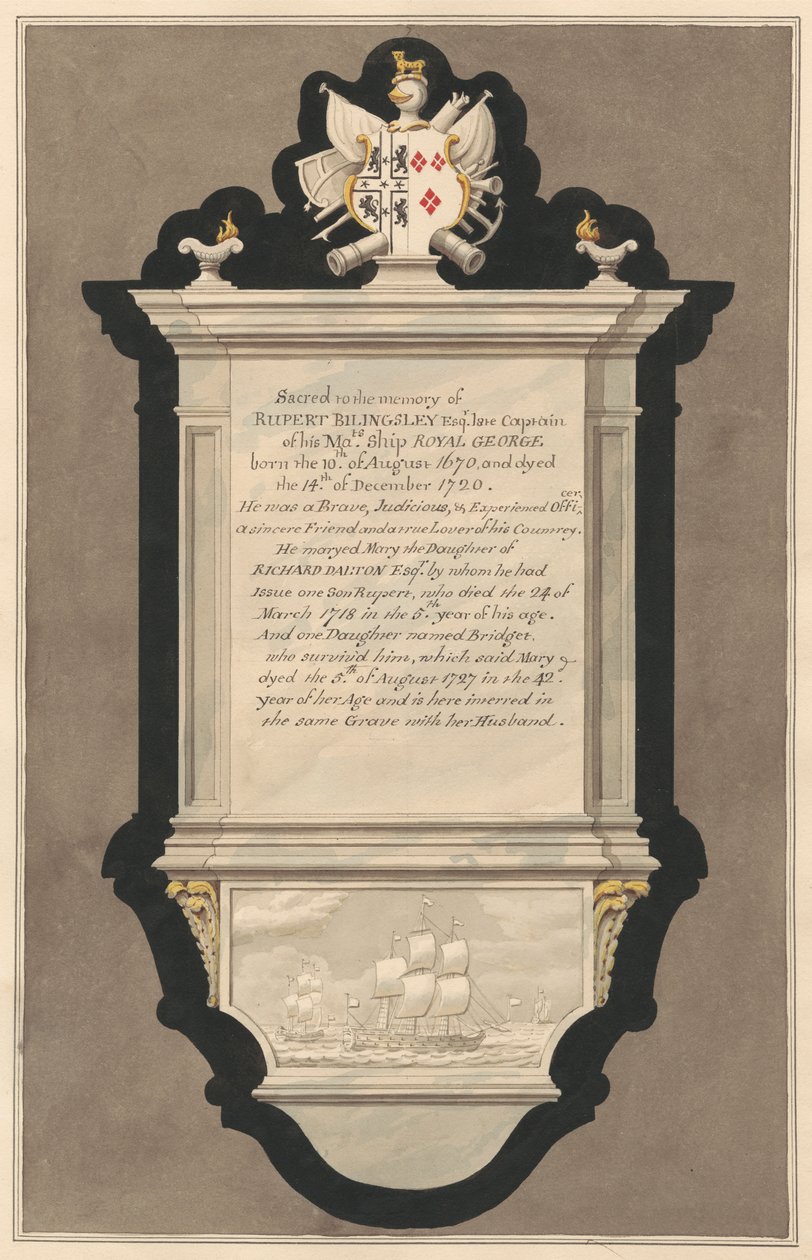 Sacred to the memory of
RUPERT BILINGSLEY Esqr. late Captain
of his Mats. Ship ROYAL GEORGE
born the 10th. of August 1670, and dyed
the 14th. of December 1720.
He was a Brave, Judicious, & Experienced Officer,
a sincere Friend and a true Lover of his Countrey.
He maryed Mary the Daughter of
RICHARD DALTON Esqr. by whom he had
Issue one Son Rupert, who died the 24 of
March 1718 in the 5th. year of his age.
And one Daughter named Bridget,
who surviv'd him, which said Mary
dyed the 5th. of August 1727 in the 42.
year of her Age and is here interred in
the same Grave with her Husband.